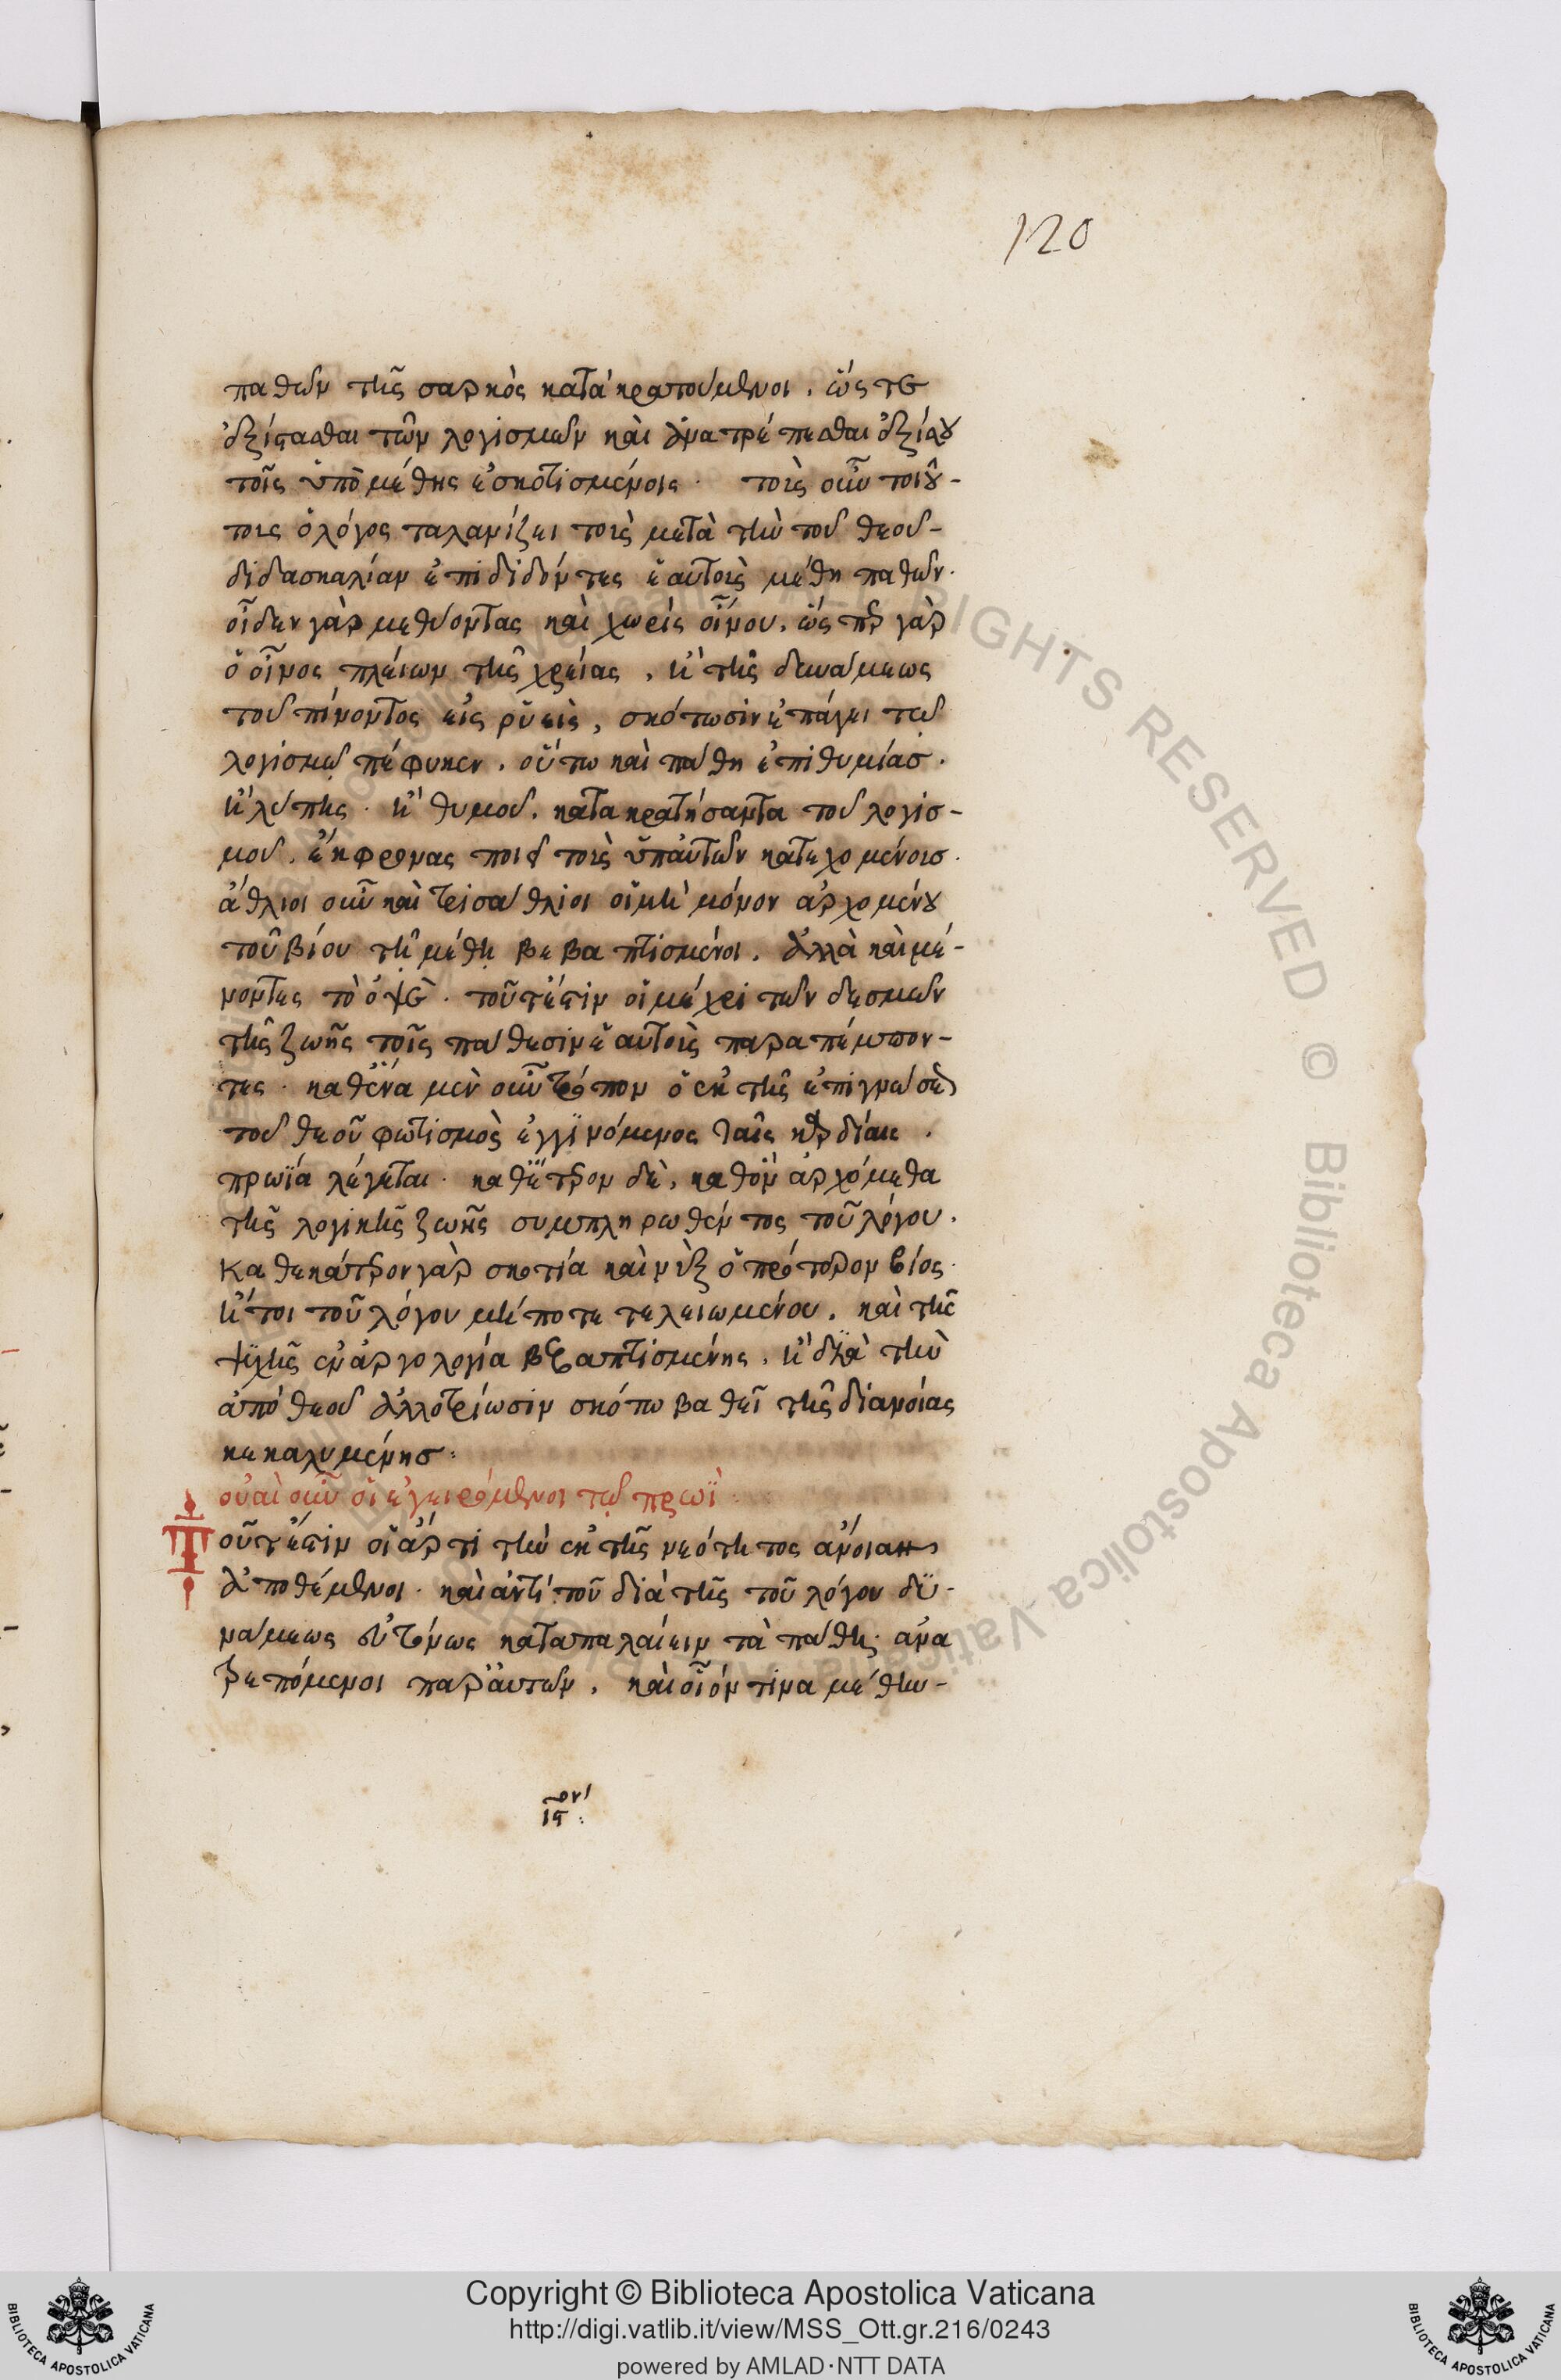 120
παθῶν τῆς σαρκὸς κατακρατούμενοι, ὥστε
ἐξίστασθαι τῶν λογισμῶν καὶ ἀνατρέπεσθαι ἐξίσου
τοῖς ὑπὸ μέθης ἐσκοτισμένοις· τοὺς οὖν τοιού-
τους ὁ λόγος ταλανίζει τοὺς μετὰ τὴν τοῦ θεοῦ-
διδασκαλίαν ἐπιδιδόντες ἑαυτοὺς μέθη παθῶν·
οἶδεν γὰρ μεθύοντας καὶ χωρὶς οἴνου, ὥσπερ γὰρ
ὁ οἶνος πλείων τῆς χρείας, καὶ τῆς δυνάμεως
τοῦ πίνοντος εἰσρυεὶς, σκότωσιν ἐπάγει τῶ
λογισμῶ πέφυκεν, οὕτω καὶ πάθη ἐπιθυμίας·
καὶ λύπης· καὶ θυμοῦ, κατακρατήσαντα τοῦ λογισ-
μοῦ, ἔκφρονας ποιεῖ τοὺς ὑπ' αὐτῶν κατεχομένους·
ἄθλιοι οὖν καὶ τρισάθλιοι οἱ μὴ μόνον ἀρχομένου
τοῦ βίου τῆ μέθη βεβαπτισμένοι, ἀλλὰ καὶ μέ-
νοντες τὸ ὀψὲ· τουτέστιν οἱ μέχρι τῶν δεσμῶν
τῆς ζωῆς τοῖς πάθεσιν ἑαυτοὺς παραπέμπον-
τες· καθ' ἕνα μὲν οὖν τρόπον ὁ ἐκ τῆς ἐπιγνώσεως
τοῦ θεοῦ φωτισμὸς ἐγγινόμενος ταῖς καρδίαις·
πρωΐα λέγεται· καθ' ἕτερον δὲ, καθ' ὃν ἀρχόμεθα
τῆς λογικῆς ζωῆς συμπληρωθέντος τοῦ λόγου·
καθ' ἑκάτερον γὰρ σκοτία καὶ νὺξ ὁ πρότερον βίος·
ἤτοι τοῦ λόγου μήποτε τελειωμένου, καὶ τῆς
ψυχῆς ἐν ἀργολογία βεβαπτισμένης, ἢ διὰ τὴν
ἀπὸ θεοῦ ἀλλοτρίωσιν σκότω βαθεῖ τῆς διανοίας
κεκαλυμένης:
οὐαὶ οὖν οἱ ἐγειρόμενοι τῶ πρωῒ·
Τουτέστιν οἱ ἄρτι τὴν ἐκ τῆς νεότητος ἄνοιαν
ἀποθέμενοι· καὶ ἀντὶ τοῦ διὰ τῆς τοῦ λόγου δυ-
νάμεως εὐτόνως καταπαλαίειν τὰ πάθη· ἀνα
τρεπόμενοι παρ' αὐτῶν, καὶ οἷόν τινα μέθην-
ιϛον:
Copyright © Biblioteca Apostolica Vaticana
http://digi.vatlib.it/view/MSS_Ott.gr.216/0243
powered by AMLAD·NTT DATA